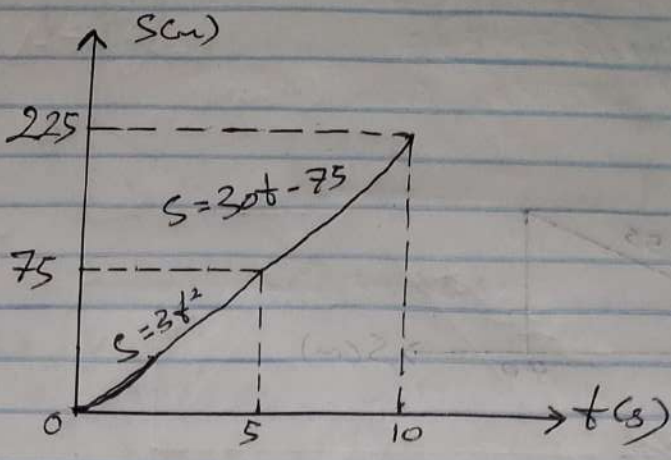 S(m)
225
S=30t-75
75
S=3t²
0
5
10
t(s)